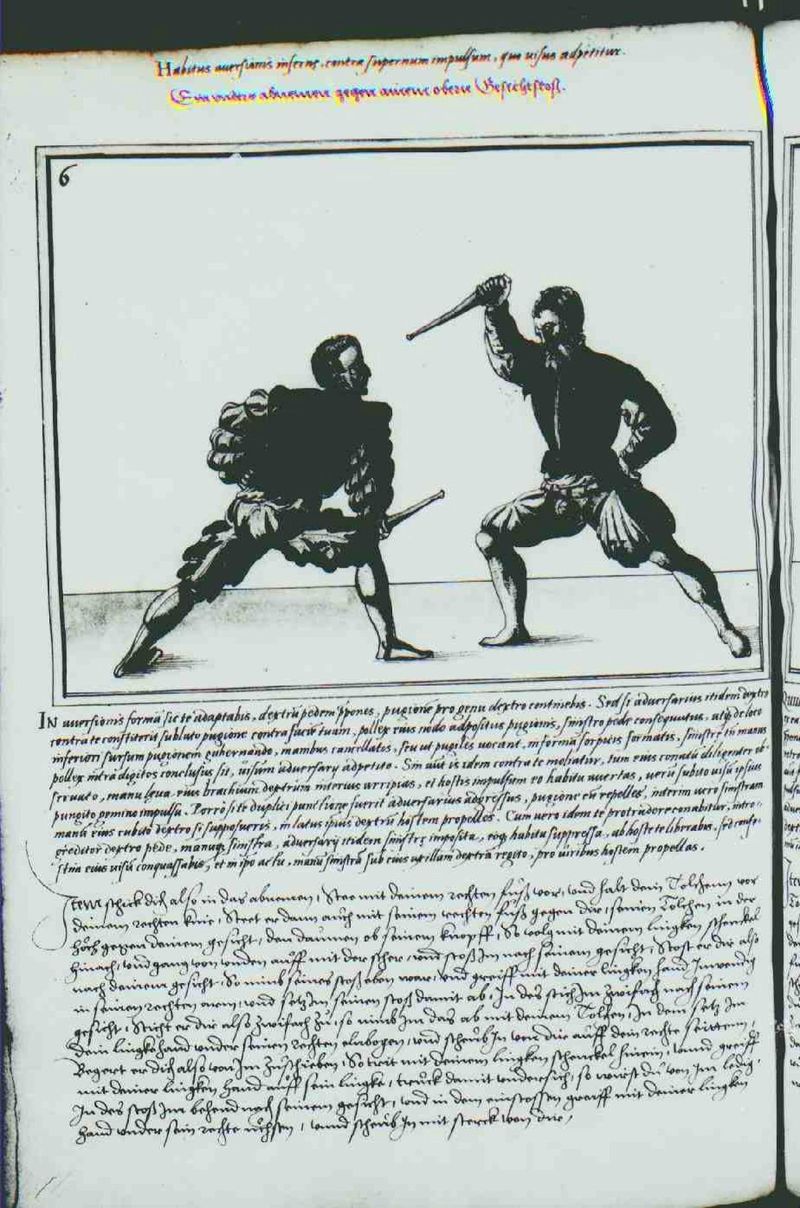 Habitus aversionis inferne, contra supernum impulsum, quo visus adpetitur.
Ein unders abnemen gegen ainem obern Gesichtstoss.
6
IN aversionis formã sic te adaptabis, dextrũ pedem ppones, pugionẽ pro genu dextro continebis. Sed si adversarius itidem dextro
contra te constiterit sublato pugione contra faciẽ tuam, pollex eius nodo adpositus pugionis, sinistro pede consequutus, atq de loco
inferiori sursum pugionem gubernando, manibus cancellatis, seu ut pugiles vocant, in forma forpicis formatis, sinistrę tuę manus
pollex intra digitos conclusus sit, visum adversarij adpetito. Sin aũt is idem contra te moliatur, tum eius conatũ diligenter ob-
servato, manu leva eius brachium dextrum interius arripias, et hostis impulsum eo habitu avertas, verũ subito visũ ipsius
pungito gemino impulsu. Porrò si te duplici punctione fuerit adversarius adgressus, pugione eũ repelles, interim verò sinistram
manũ eius cubito dextro si supposueris, in latus ipsius dextrũ hostem propelles. Cum verò idem te protrudere conabitur, intro-
greditor dextro pede, manuq sinistra, adversarij itidem sinistrę imposita, eaq habitu suppressa, ab hoste te liberabis, sed confe-
stim eius visũ conquassabis, et in ipso actu, manũ sinistrã sub eius axillam dextrã regito, pro viribus hostem propellas.
Item schick dich also in das abnemen, Stee mit deinem rechten fuß vor, und halt dein Tolchenn vor
deinem rechten knie, Steet er dann auch mit seinem rechten fuß gegen dir, seinen Tolchen in der
hoch gegen deinem gesicht, den daumen ob seinem knopff, So volg mit deinem lingken schenckel
hinach, und gang von unden auff mit der scher, und stoß Im nach seinem gesicht, Stost er dir also
nach deinem gesicht, So nimb seines stoß eben war, und greiff mit deiner lingken hand Inwendig
in seinen rechten arm, und setz Im seinen stoß damit ab, In des stich Im zwifach nach seinem
gesicht, Sticht er dir also zwifach zu, so nimb Im das ab mit deinem Tolchen, In dem setz Im
dein lingke hand under seinen rechten elnbogen, und scheub In von dir auff dein rechte seitten,
Begert er dich also von Im zuschieben, So trit mit deinem lingken schenckel hinein, unnd greiff
mit deiner lingken hand auff sein lingke, truck damit undersich, so wirst du von Im ledig,
In des stoß Im behend nach seinem gesicht, und in dem einstossen greiff mit deiner lingken
hand under sein rechte uchsen, unnd scheub In mit sterck von dir,